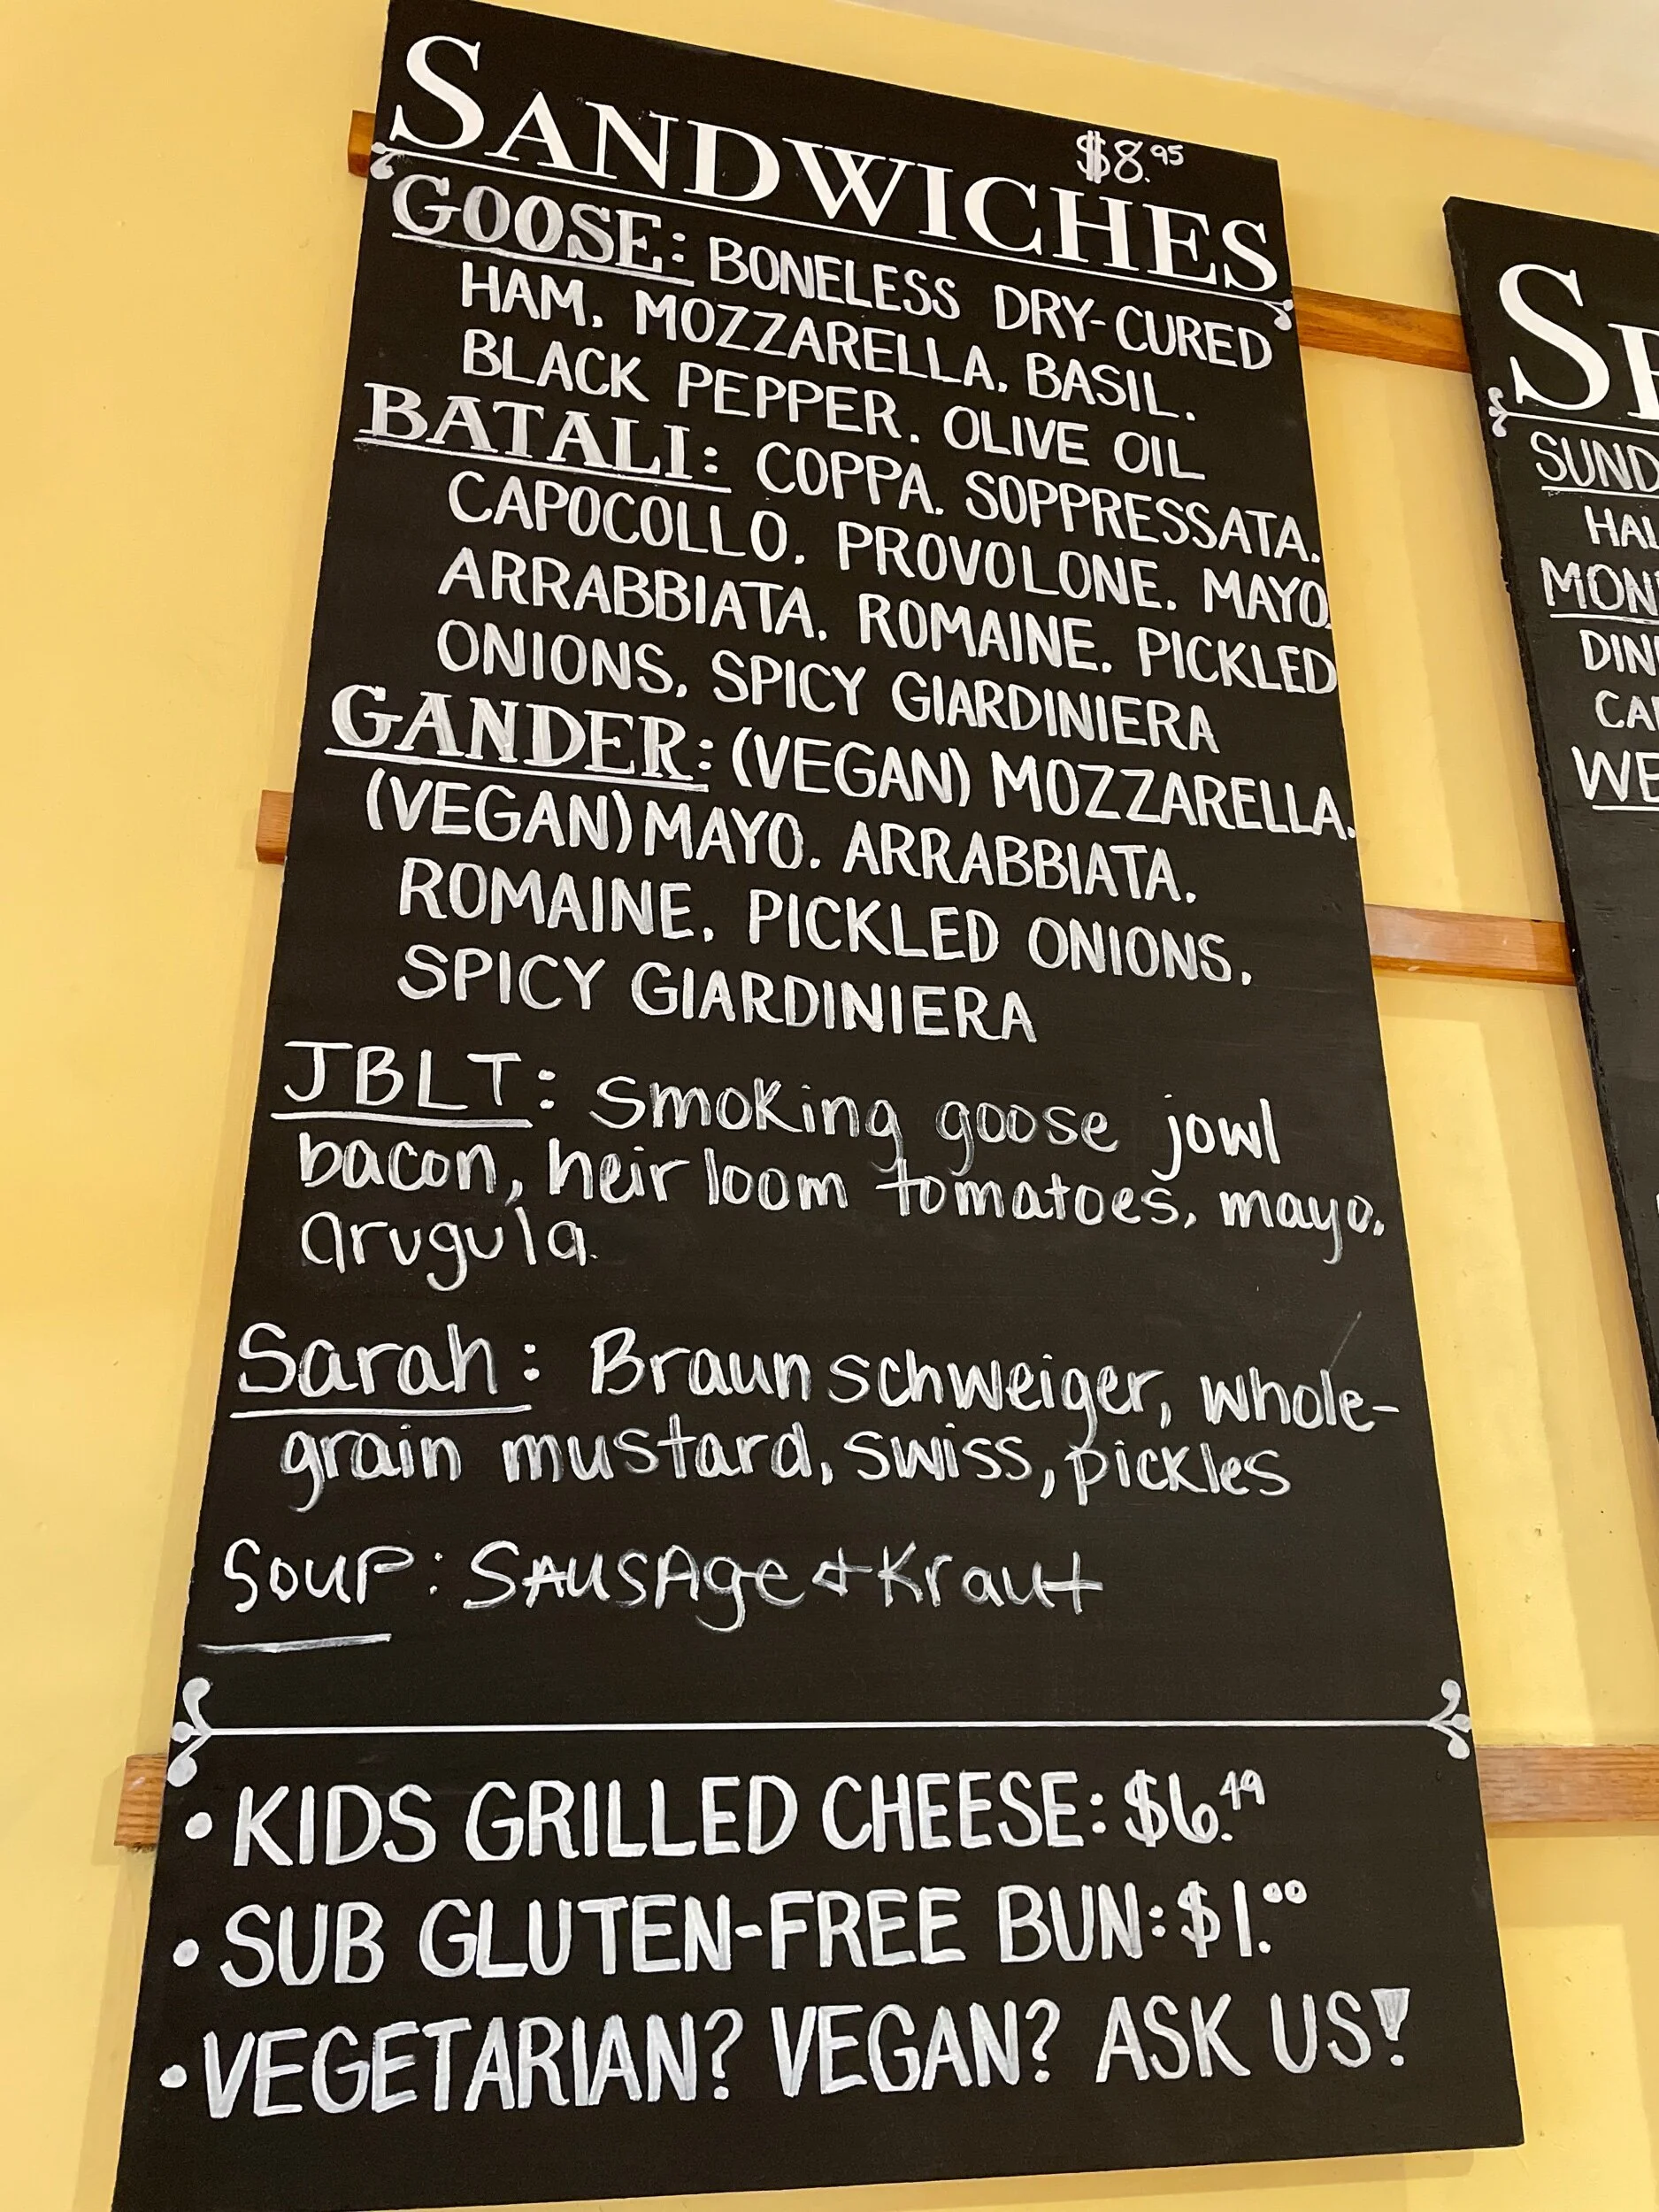 SANDWICHES $8.95
GOOSE: BONELESS DRY-CURED
HAM. MOZZARELLA. BASIL.
BLACK PEPPER. OLIVE OIL
BATALI: COPPA. SOPPRESSATA.
CAPOCOLLO. PROVOLONE. MAYO
ARRABBIATA. ROMAINE. PICKLED
ONIONS. SPICY GIARDINIERA
GANDER: (VEGAN) MOZZARELLA.
(VEGAN) MAYO. ARRABBIATA.
ROMAINE. PICKLED ONIONS.
SPICY GIARDINIERA
JBLT: Smoking goose jowl
bacon, heirloom tomatoes, mayo.
arugula.
Sarah: Braunschweiger, whole-
grain mustard, swiss, pickles
Soup: Sausage & Kraut
• KIDS GRILLED CHEESE: $6.49
• SUB GLUTEN-FREE BUN: $1.00
• VEGETARIAN? VEGAN? ASK US!
SUND
HAL
MON
DIN
WE